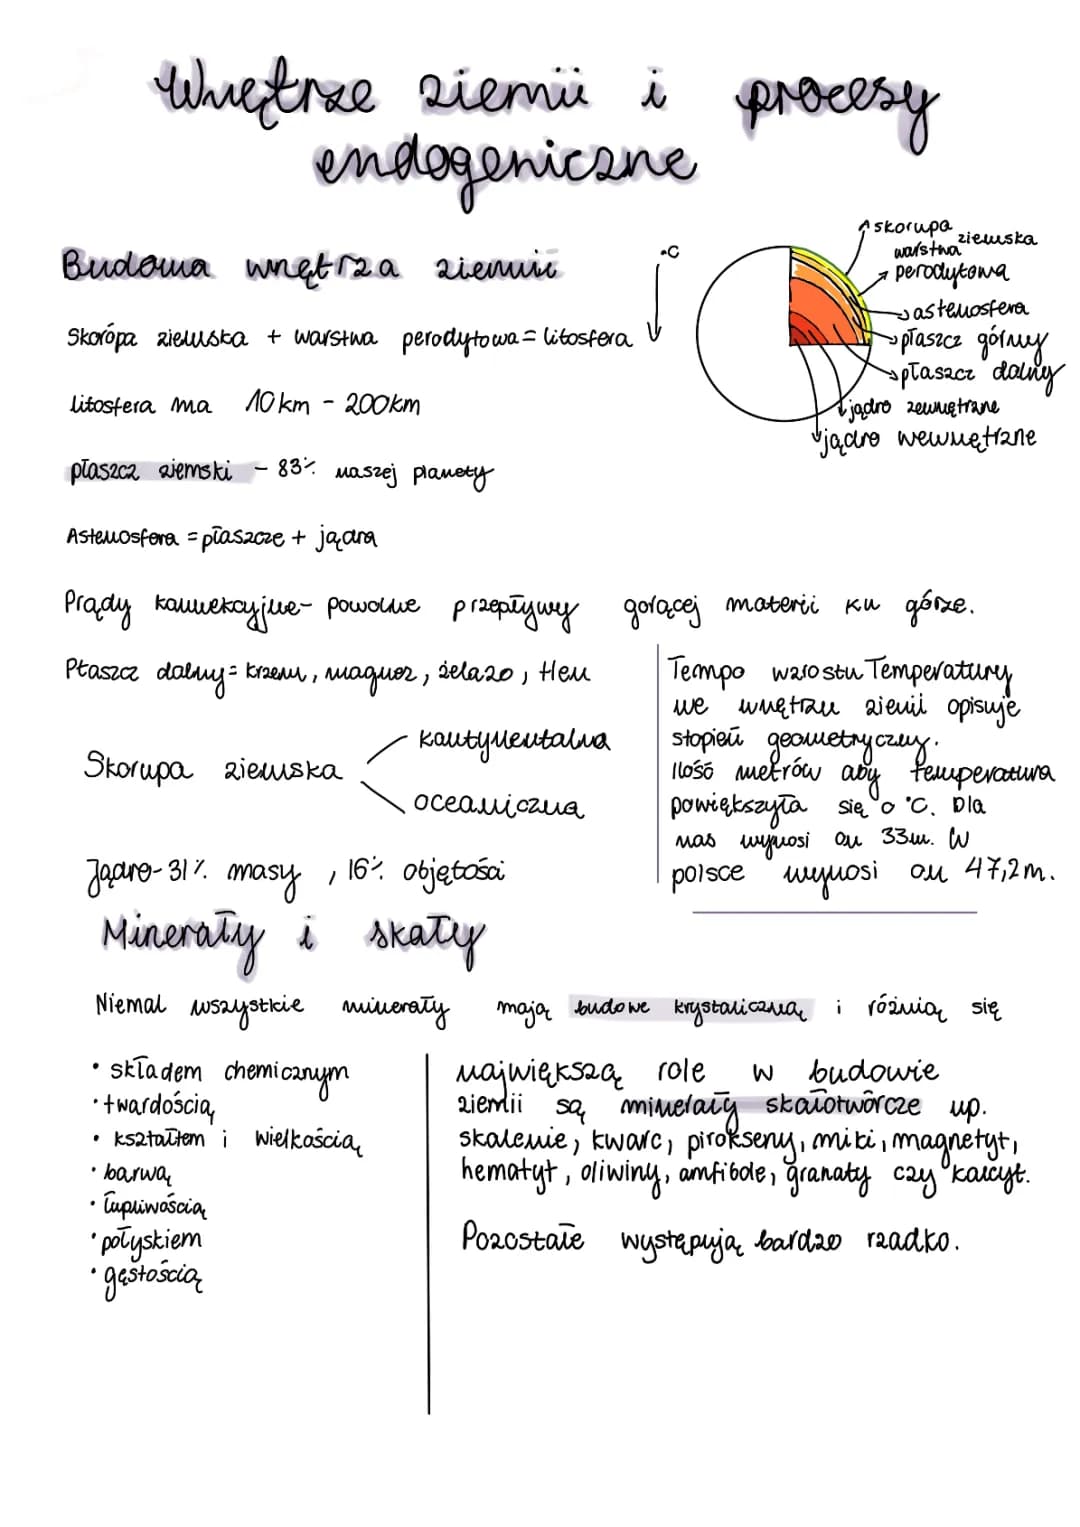 Wnętrze ziemii i procesy
endogeniczne
Budowa wnętrza ziemii
°C
skorupa
ziemska
warstwa
perodytowa
astenosfera
płaszcz górny
płaszcz dolny
jądro zewnętrzne
jądro wewnętrzne
Skorópa ziemska + warstwa perodytowa = litosfera
litosfera ma 10km - 200km
płaszcz ziemski - 83% naszej planety
Astenosfera = płaszcze + jądra
Prądy konwekcyjne - powolne przepływy gorącej materii ku górze.
Płaszcz dolny = krzem, magnez, żelazo, Hen
Skorupa ziemska
kontynentalna
oceaniczna
Jądro - 31% masy, 16% objętości
Tempo wzrostu Temperatury
we wnętrzu ziemii opisuje
stopień geometryczny.
Ilość metrów aby temperatura
powiększyła się o °C. Dla
nas wynosi on 33m. W
polsce wynosi on 47,2m.
Minerały i skały
Niemal wszystkie minerały mają budowe krystaliczną i różnią się
• składem chemicznym
• twardością
• kształtem i wielkością
• barwą
• łupliwością
• połyskiem
• gęstością
największą role w budowie
ziemii są minerały skałotwórcze np.
skalenie, kwarc, pirokseny, miki, magnetyt,
hematyt, oliwiny, amfibole, granaty czy kalcyt.
Pozostałe występują bardzo rzadko.